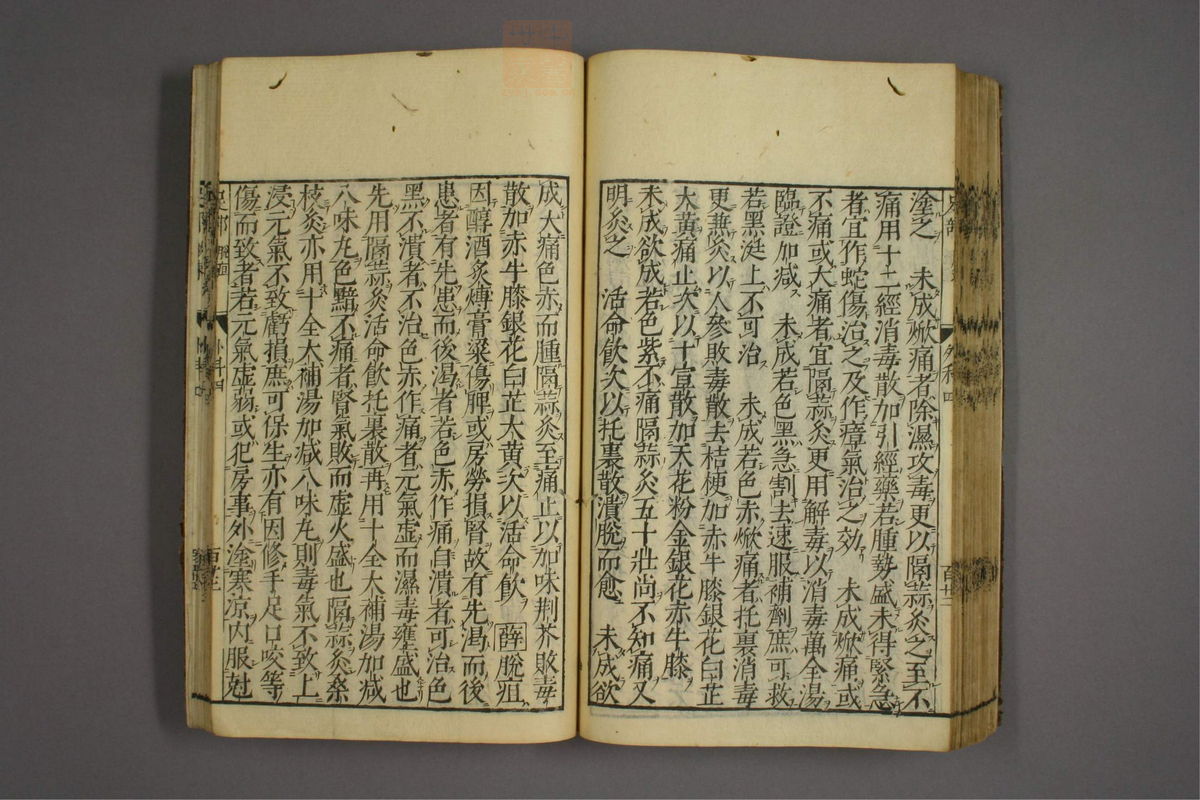 塗之　未成焮痛者除濕攻毒更以隔蒜灸之至不
痛用十二經消毒散加引經藥若腫勢盛未得緊急
者宜作蛇傷治之及作瘴氣治之効　未成焮痛或
不痛或大痛者宜隔蒜灸更用解毒以消毒萬全湯
臨證加减　未成若色黒急割去速服補劑庶可救
若黒漟上不可治　未成若色赤焮痛者托裏消毒
更兼灸以人參敗毒散去桔梗加赤牛膝銀花白芷
大黄痛止次以十宣散加天花粉金銀花赤牛膝
未成欲成若色紫不痛隔蒜灸五十壯尚不知痛又
明灸之　活命飲次以托裏散潰脫而愈　未成欲
成大痛色赤而腫隔蒜灸至痛止以加味荆芥敗毒
散加赤牛膝銀花白芷大黄次以活命飲　薛脫疽
因醇酒炙煿膏粱傷脾或房勞損腎故有先渴而後
患者有先患而後渴者若色赤作痛自潰者可治色
黒不潰者不治色赤作痛者元氣虚而濕毒壅盛也
先用隔蒜灸活命飲托裏散再用十全大補湯加减
八味丸色黯不痛者腎氣敗而虚火盛也隔蒜灸桑
枝灸亦用十全大補湯加减八味丸則毒氣不致上
浸元氣不致虧損庶可保生亦有因修手足口咬等
傷而致者若元氣虚弱或犯房事外塗寒凉内服尅
外科四
百廿二